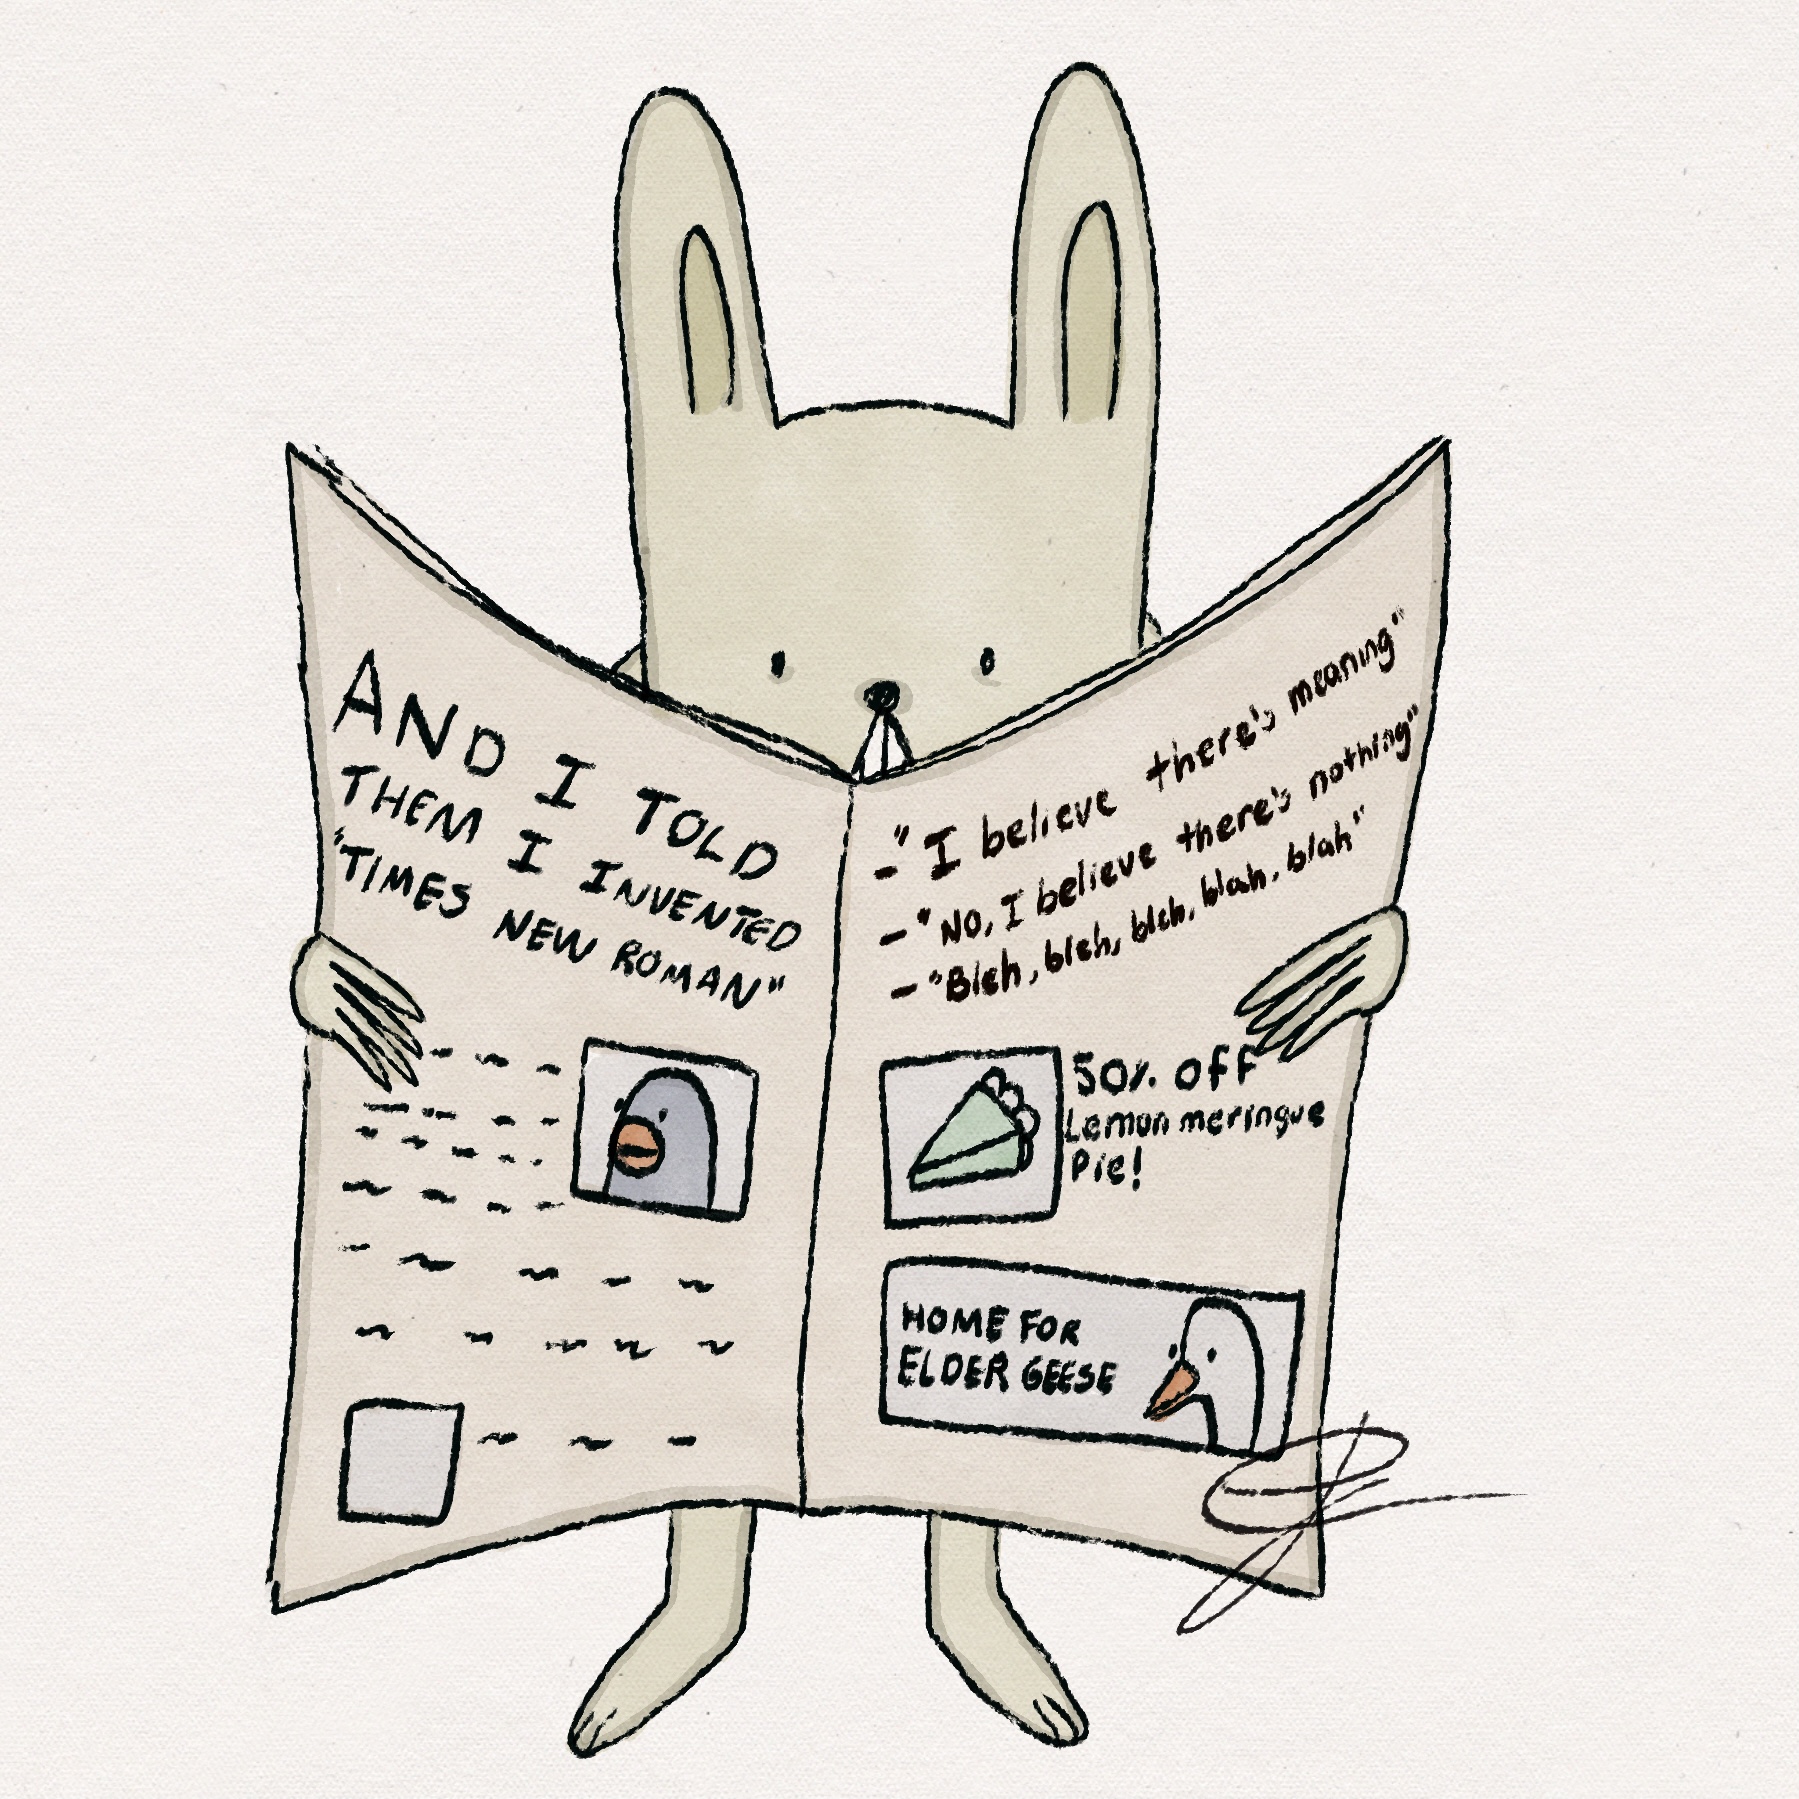 AND I TOLD
THEM I INVENTED
"TIMES NEW ROMAN"
-"I believe there's meaning"
-"No, I believe there's nothing"
-"Bleh, bleh, bleh, blah, blah"
50% off
Lemon meringue
Pie!
HOME FOR
ELDER GEESE